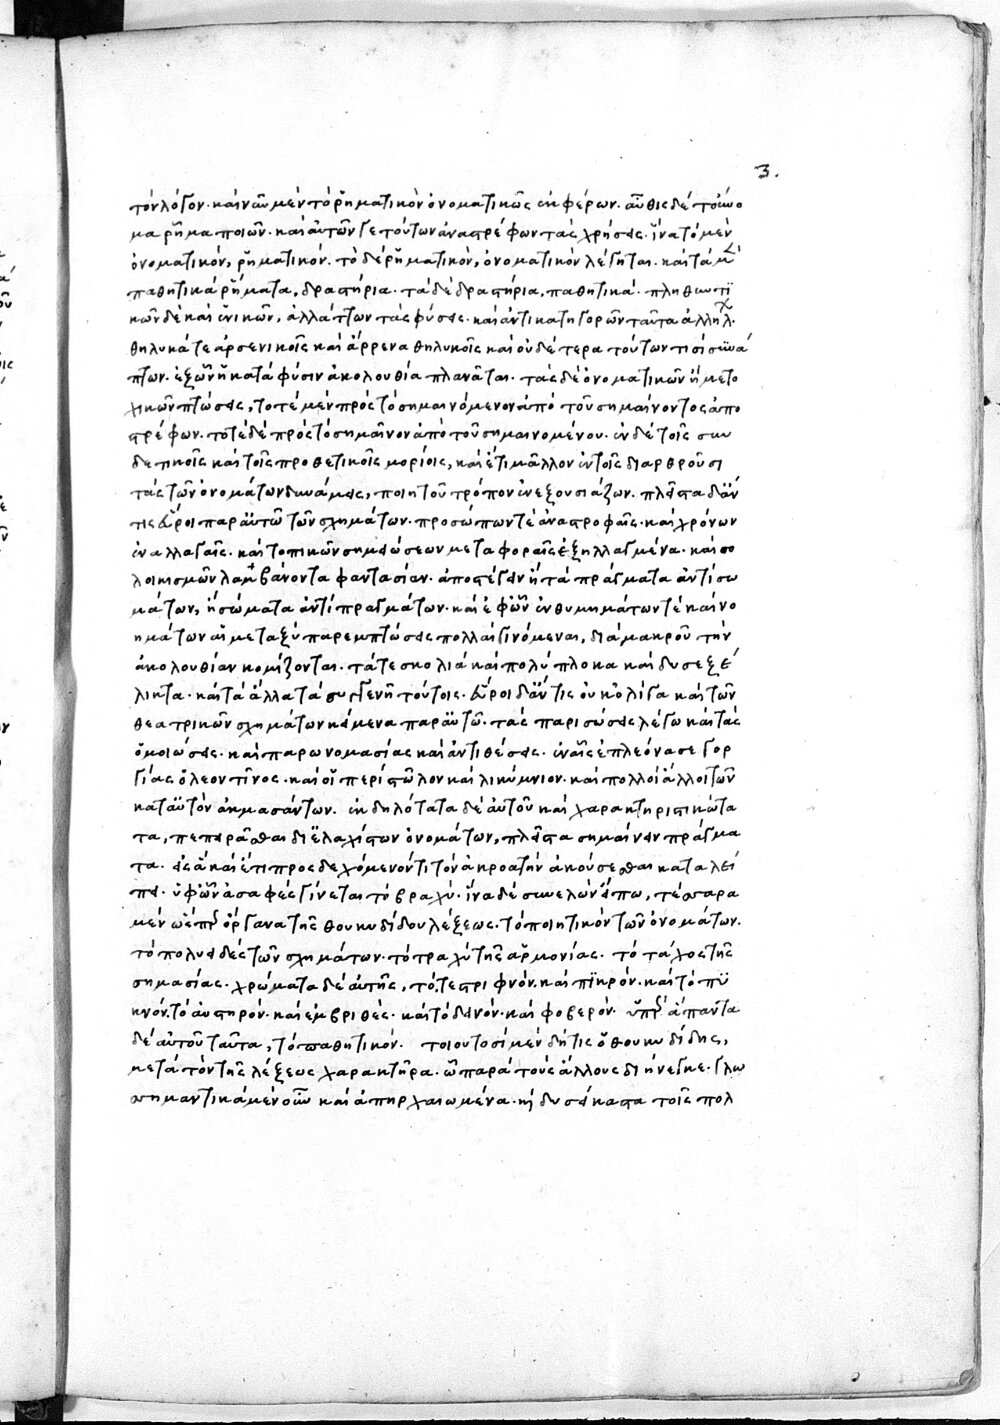 3.
τὸν λόγον· καὶ νῦν μὲν τὸ ῥηματικὸν ὀνοματικῶς ἐκφέρων. αὖθις δὲ τοὔνο
μα ῥῆμα ποιῶν. καὶ αὐτῶν γε τούτων ἀναστρέφων τὰς χρήσεις. ἵνα τὸ μὲν
ὀνοματικόν, ῥηματικόν. τὸ δὲ ῥηματικόν, ὀνοματικὸν λέγηται. καὶ τὰ μὲν
παθητικὰ ῥήματα, δραστήρια. τὰ δὲ δραστήρια, παθητικά. πληθυντι
κῶν δὲ καὶ ἑνικῶν, ἀλλάττων τὰς φύσεις. καὶ ἀντικατηγορῶν ταῦτα ἀλλήλ
θηλυκά τε ἀρσενικοῖς καὶ ἄρρενα θηλυκοῖς καὶ οὐδέτερα τούτων τισὶ συνά
πτων. ἐξ ὧν ἡ κατὰ φύσιν ἀκολουθία πλανᾶται. τὰς δὲ ὀνοματικῶν ἢ μετο
χικῶν πτώσεις, τοτὲ μὲν πρὸς τὸ σημαινόμενον ἀπὸ τοῦ σημαίνοντος ἀπο
στρέφων. τοτὲ δὲ πρὸς τὸ σημαῖνον ἀπὸ τοῦ σημαινομένου. ἐν δὲ τοῖς συν
δετικοῖς καὶ τοῖς προθετικοῖς μορίοις, καὶ ἔτι μᾶλλον ἐν τοῖς διαρθροῦσι
τὰς τῶν ὀνομάτων δυνάμεις, ποιητοῦ τρόπον ἐνεξουσιάζων. πλεῖστα δ' ἄν
τις εὕροι παρ' αὐτῷ τῶν σχημάτων. προσώπων τε ἀναστροφαῖς. καὶ χρόνων
ἐναλλαγαῖς. καὶ τοπικῶν σημειώσεων μεταφοραῖς ἐξηλλαγμένα. καὶ σο
λοικισμῶν λαμβάνοντα φαντασίαν. ἀποστέγειν ἢ τὰ πράγματα ἀντὶ σω
μάτων, ἢ σώματα ἀντὶ πραγμάτων. καὶ ἐφ' ὧν ἐνθυμημάτων τὲ καὶ νο
ημάτων αἱ μεταξὺ παρεμπτώσεις πολλαὶ γινόμεναι, διὰ μακροῦ τὴν
ἀκολουθίαν κομίζονται. τά τε σκολιὰ καὶ πολύπλοκα καὶ δυσεξέ
λικτα. καὶ τὰ ἄλλα τὰ συγγενῆ τούτοις. εὕροι δ' ἄν τις οὐκ ὀλίγα καὶ τῶν
θεατρικῶν σχημάτων κείμενα παρ' αὐτῷ. τὰς παρισώσεις λέγω καὶ τὰς
ὁμοιώσεις. καὶ παρωνομασίας καὶ ἀντιθέσεις. ἐν αἷς ἐπλεόνασε Γορ
γίας ὁ λεοντῖνος. καὶ οἱ περὶ πῶλον καὶ λικύμνιον. καὶ πολλοὶ ἄλλοι τῶν
κατ' αὐτὸν ἀκμασάντων. ἐκδηλότατα δὲ αὐτοῦ καὶ χαρακτηριστικώτα
τα, πεπειρᾶσθαι δι' ἐλαχίστων ὀνομάτων, πλεῖστα σημαίνειν πράγμα
τα. εἰς ἃ καὶ ἔτι προσδεχόμενόν τι τὸν ἀκροατὴν ἀκούσεσθαι καταλεί
πει. ὑφ' ὧν ἀσαφὲς γίνεται τὸ βραχύ. ἵνα δὲ συνελὼν εἴπω, τέσσαρα
μὲν ὥσπερ ὄργανα τῆς θουκυδίδου λέξεως. τὸ ποιητικὸν τῶν ὀνομάτων.
τὸ πολυειδὲς τῶν σχημάτων. τὸ τραχὺ τῆς ἁρμονίας. τὸ τάχος τῆς
σημασίας. χρώματα δὲ αὐτῆς, τό τε στριφνόν. καὶ πικρόν. καὶ τὸ πυ
κνόν. τὸ αὐστηρόν. καὶ ἐμβριθές. καὶ τὸ δεινόν. καὶ φοβερόν. ὑπὲρ ἅπαντα
δὲ αὐτοῦ ταῦτα, τὸ παθητικόν. τοιουτοσὶ μὲν δή τις ὁ θουκυδίδης,
κατὰ τὸν τῆς λέξεως χαρακτῆρα. ᾧ παρὰ τοὺς ἄλλους διήνεγκε. γλω
σσηματικὰ μὲν οὖν καὶ ἀπηρχαιωμένα. καὶ δυσείκαστα τοῖς πολ